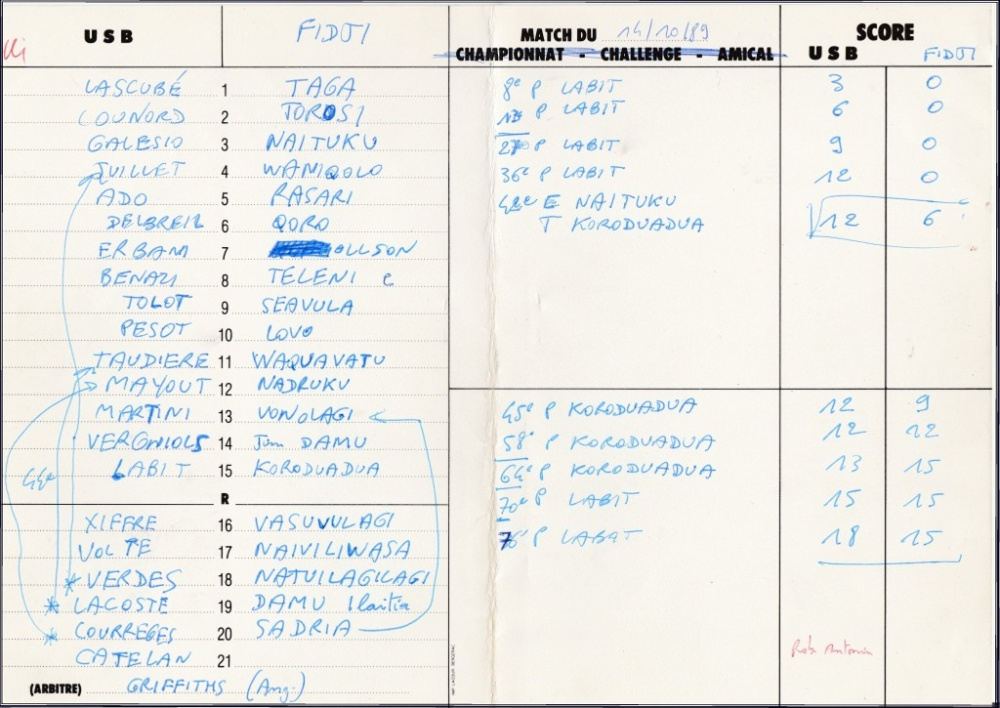 USB FIDJI MATCH DU 14/10/89 SCORE
CHAMPIONNAT - CHALLENGE - AMICAL USB FIDJI
LASCUBÉ 1 TAGA
LOUNORD 2 TOROSI
GALESIO 3 NAITUKU
JUILLET 4 WANIQOLO
ADO 5 RASARI
DELBREIL 6 QORO
ERBANI 7 OLLSON
BENAZI 8 TELENI c
TOLOT 9 SEAVULA
PESOT 10 LOVO
TAUDIERE 11 WAQUAVATU
MAYOUT 12 NADRUKU
MARTINI 13 VONOLAGI
VERGNIOLS 14 DAMU
LABIT 15 KORODUADUA
R
44e
XIFFRE 16 VASUVULAGI
VOLPE 17 NAIVILIWASA
* VERDES 18 NATUILAGILAGI
* LACOSTE 19 DAMU Ilaitia
* COURREGES 20 SADRIA
CATELAN 21
(ARBITRE) GRIFFITHS (Ang.)
8e P LABIT 3 0
P LABIT 6 0
P LABIT 9 0
36e P LABIT 12 0
42e E NAITUKU
T KORODUADUA 12 6
45e P KORODUADUA 12 9
58e P KORODUADUA 12 12
64e P KORODUADUA 13 15
70e P LABIT 15 15
P LABAT 18 15